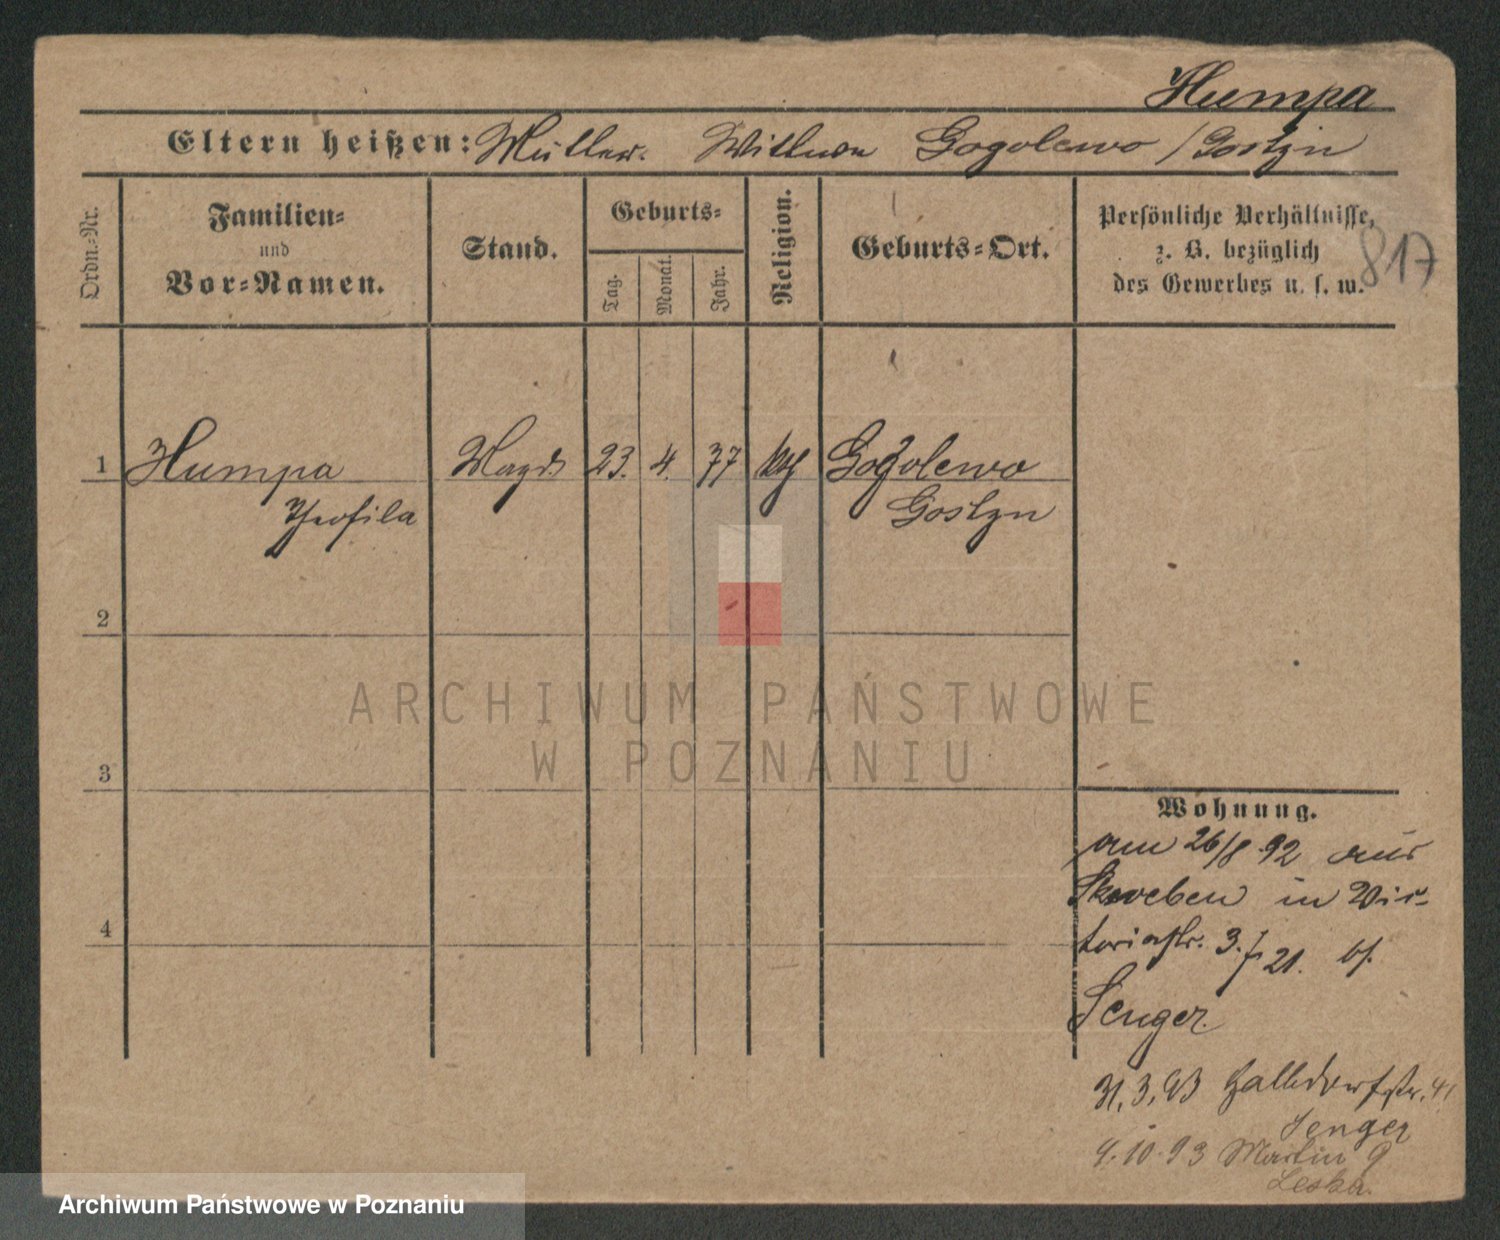 Humpa
Eltern heißen: Mutter. Wittwe Gogolewo / Gostyn
Ordn.-Nr.
Familien-
und
Vor-Namen.
Stand.
Geburts-
Tag.
Monat.
Jahr.
Religion.
Geburts-Ort.
Persönliche Verhältnisse,
z. B. bezüglich
des Gewerbes u. s. w.
817
1 Humpa Magd 23. 4. 77 kth Gogolewo
Theofila Gostyn
2
3
4
ARCHIWUM PAŃSTWOWE
W POZNANIU
Wohnung.
am 26/8 92 aus
in Vic-
toriastr. 3. 21. bf.
Senger.
31.3.93 41
Senger
4.10.93 Martin 9
Archiwum Państwowe w Poznaniu